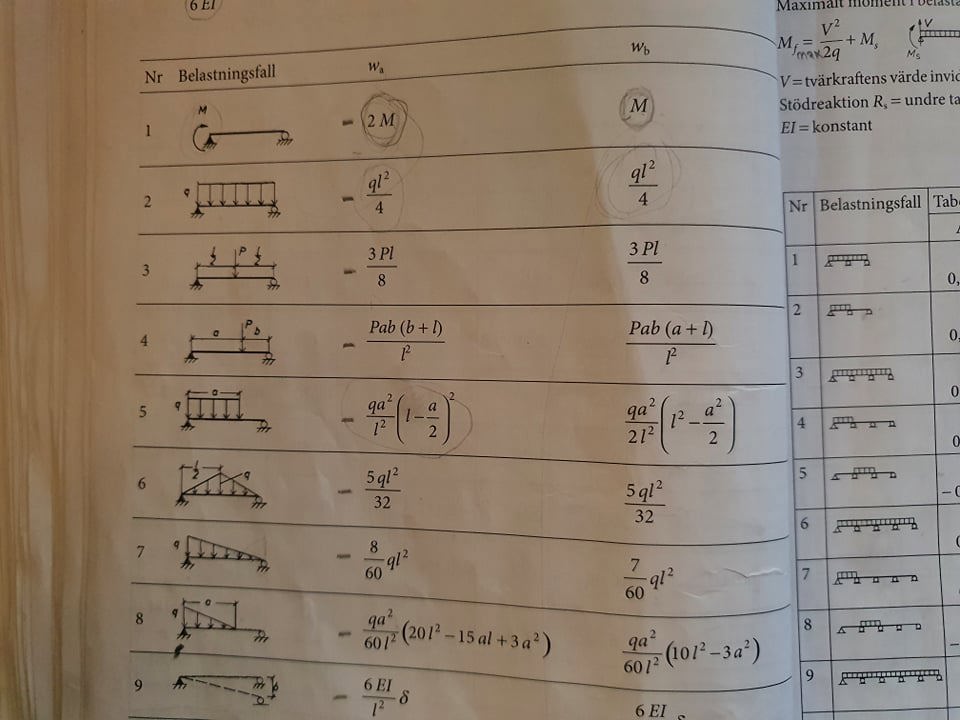 6 EI
Nr Belastningsfall w_a w_b
1 M – 2 M M
2 q – ql²/4 ql²/4
3 l/2 P l/2 – 3 Pl/8 3 Pl/8
4 a P b – Pab (b + l)/l² Pab (a + l)/l²
5 q a – qa²/l² (l – a/2)² qa²/2l² (l² – a²/2)
6 l/2 q – 5 ql²/32 5 ql²/32
7 q – 8/60 ql² 7/60 ql²
8 q a – qa²/60 l² (20 l² – 15 al + 3 a²) qa²/60 l² (10 l² – 3 a²)
9 δ – 6 EI/l² δ 6 EI
Maximalt moment i belasta
M_f max = V²/2q + M_s V M_s
V = tvärkraftens värde invid
Stödreaktion R_s = undre ta
EI = konstant
Nr Belastningsfall Tabe
1 0,
2 0,
3 0
4 0
5 – 0
6
7
8 –
9